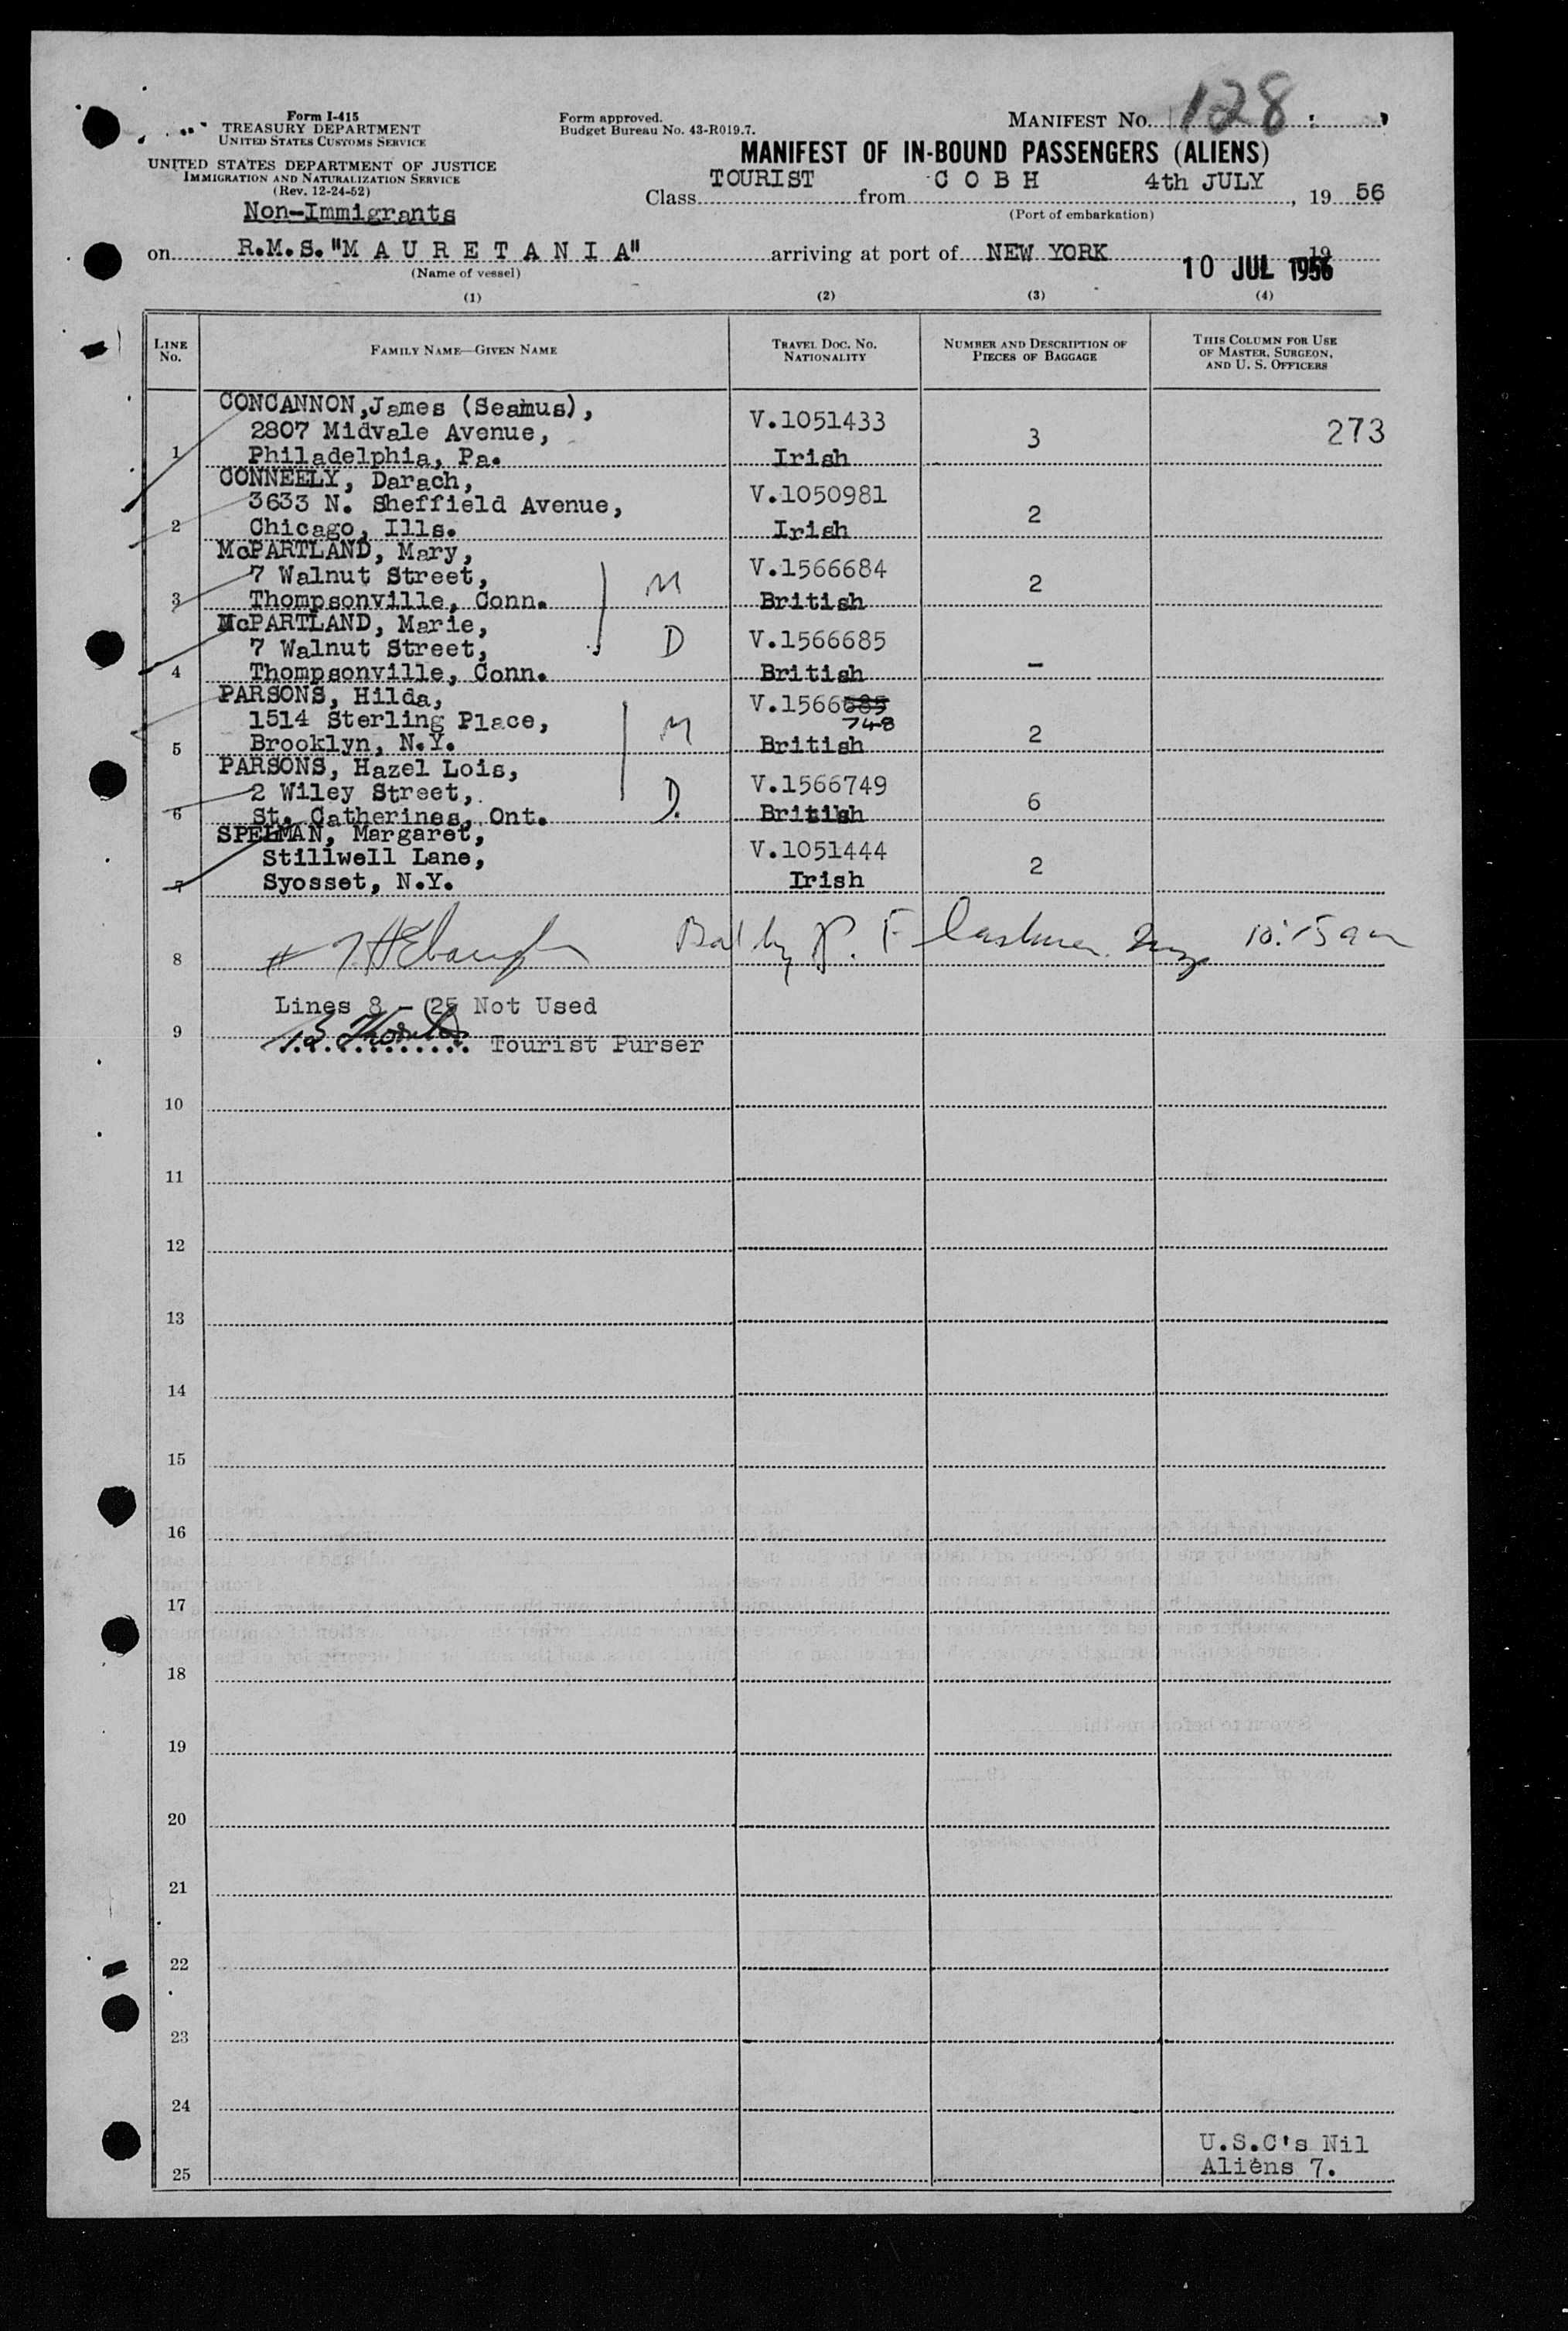 Form I-415
TREASURY DEPARTMENT
UNITED STATES CUSTOMS SERVICE
UNITED STATES DEPARTMENT OF JUSTICE
IMMIGRATION AND NATURALIZATION SERVICE
(Rev. 12-24-52)
Non-Immigrants
Form approved.
Budget Bureau No. 43-R019.7.
MANIFEST NO. 128
MANIFEST OF IN-BOUND PASSENGERS (ALIENS)
Class TOURIST from C O B H 4th JULY, 19 56
(Port of embarkation)
on R.M.S. "M A U R E T A N I A" arriving at port of NEW YORK 19
10 JUL 1956
(Name of vessel)
(1) (2) (3) (4)
LINE NO. FAMILY NAME—GIVEN NAME TRAVEL DOC. NO. NATIONALITY NUMBER AND DESCRIPTION OF PIECES OF BAGGAGE THIS COLUMN FOR USE OF MASTER, SURGEON, AND U. S. OFFICERS
CONCANNON, James (Seamus),
2807 Midvale Avenue, V.1051433 3 273
1 Philadelphia, Pa. Irish
CONNEELY, Darach,
3633 N. Sheffield Avenue, V.1050981 2
2 Chicago, Ills. Irish
McPARTLAND, Mary,
7 Walnut Street, M V.1566684 2
3 Thompsonville, Conn. British
McPARTLAND, Marie,
7 Walnut Street, D V.1566685 –
4 Thompsonville, Conn. British
PARSONS, Hilda, V.1566685
1514 Sterling Place, M 748 2
5 Brooklyn, N.Y. British
PARSONS, Hazel Lois,
2 Wiley Street, D. V.1566749 6
6 St. Catherines, Ont. British
SPELMAN, Margaret,
Stillwell Lane, V.1051444 2
7 Syosset, N.Y. Irish
8 10:15 am
Lines 8 - 25 Not Used
9 Tourist Purser
10
11
12
13
14
15
16
17
18
19
20
21
22
23
24
U.S.C's Nil
25 Aliens 7.